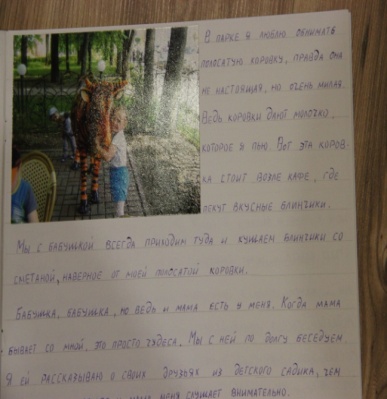 В ПАРКЕ Я ЛЮБЛЮ ОБНИМАТЬ
ПОЛОСАТУЮ КОРОВКУ, ПРАВДА ОНА
НЕ НАСТОЯЩАЯ, НО ОЧЕНЬ МИЛАЯ
ВЕДЬ КОРОВКИ ДАЮТ МОЛОЧКО,
КОТОРОЕ Я ПЬЮ. ВОТ ЭТА КОРОВ-
КА СТОИТ ВОЗЛЕ КАФЕ, ГДЕ
ПЕКУТ ВКУСНЫЕ БЛИНЧИКИ.
МЫ С БАБУШКОЙ ВСЕГДА ПРИХОДИМ ТУДА И КУШАЕМ БЛИНЧИКИ СО
СМЕТАНОЙ, НАВЕРНОЕ ОТ МОЕЙ ПОЛОСАТОЙ КОРОВКИ.
БАБУШКА, БАБУШКА, НО ВЕДЬ И МАМА ЕСТЬ У МЕНЯ. КОГДА МАМА
БЫВАЕТ СО МНОЙ, ЭТО ПРОСТО ЧУДЕСА. МЫ С НЕЙ ПО ДОЛГУ БЕСЕДУЕМ
Я ЕЙ РАССКАЗЫВАЮ О СВОИХ ДРУЗЬЯХ ИЗ ДЕТСКОГО САДИКА, ЧЕМ
МАМА МЕНЯ СЛУШАЕТ ВНИМАТЕЛЬНО.